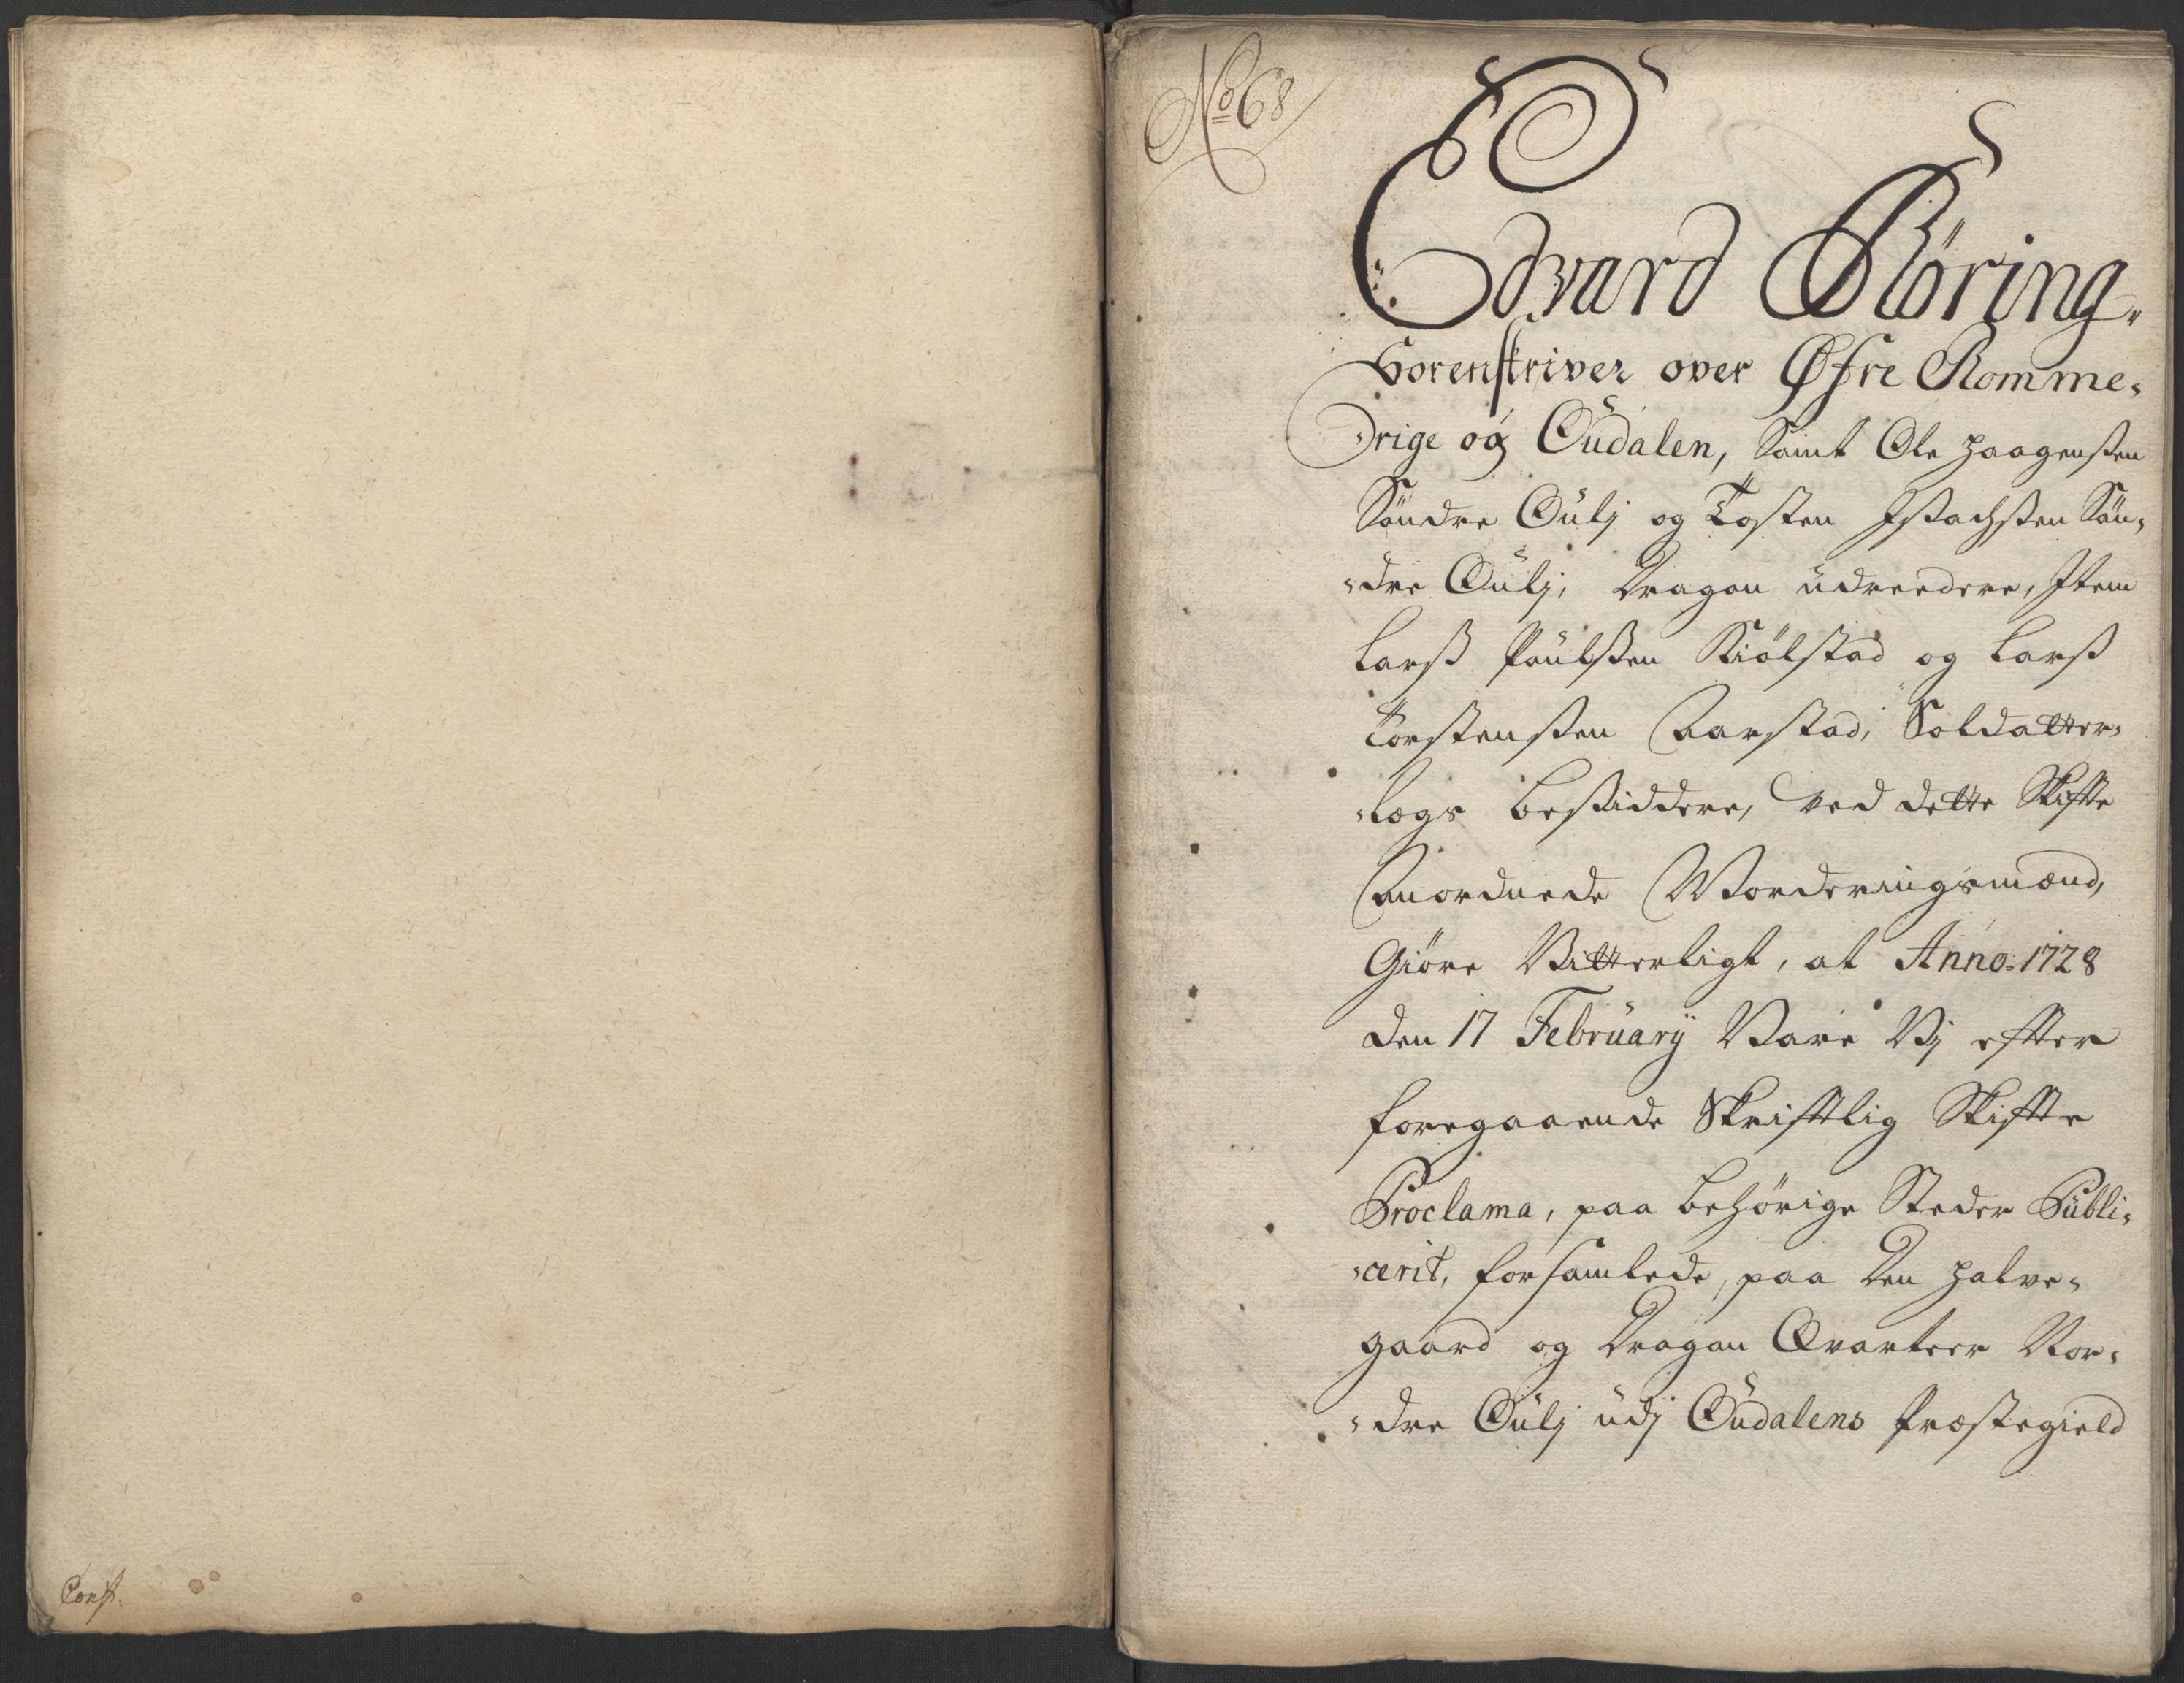 Conf.
No 68
Edvard Röring,
Sorenskriver over Øfre Romme-
drige og Oudalen, Samt Ole Haagensen
Söndre Oulj og Tosten Isachsen Sön-
dre Oulj, Dragon udreedere, Item
Larss Poulsen Kiölstad og Larss
Torstensen Aarstad, Soldatter-
Lægs besiddere, ved dette Skifte
Anordnede Worderingsmænd,
Giöre Vitterligt, at Anno 1728
den 17 Februarÿ Vare Vj efter
foregaaende Skriftlig Skifte
Proclama, paa behörige Steder Publi-
cerit, forsamlede, paa den halve-
gaard og Dragon Qvarteer Nor-
dre Oulj udj Oudalens Præstegield